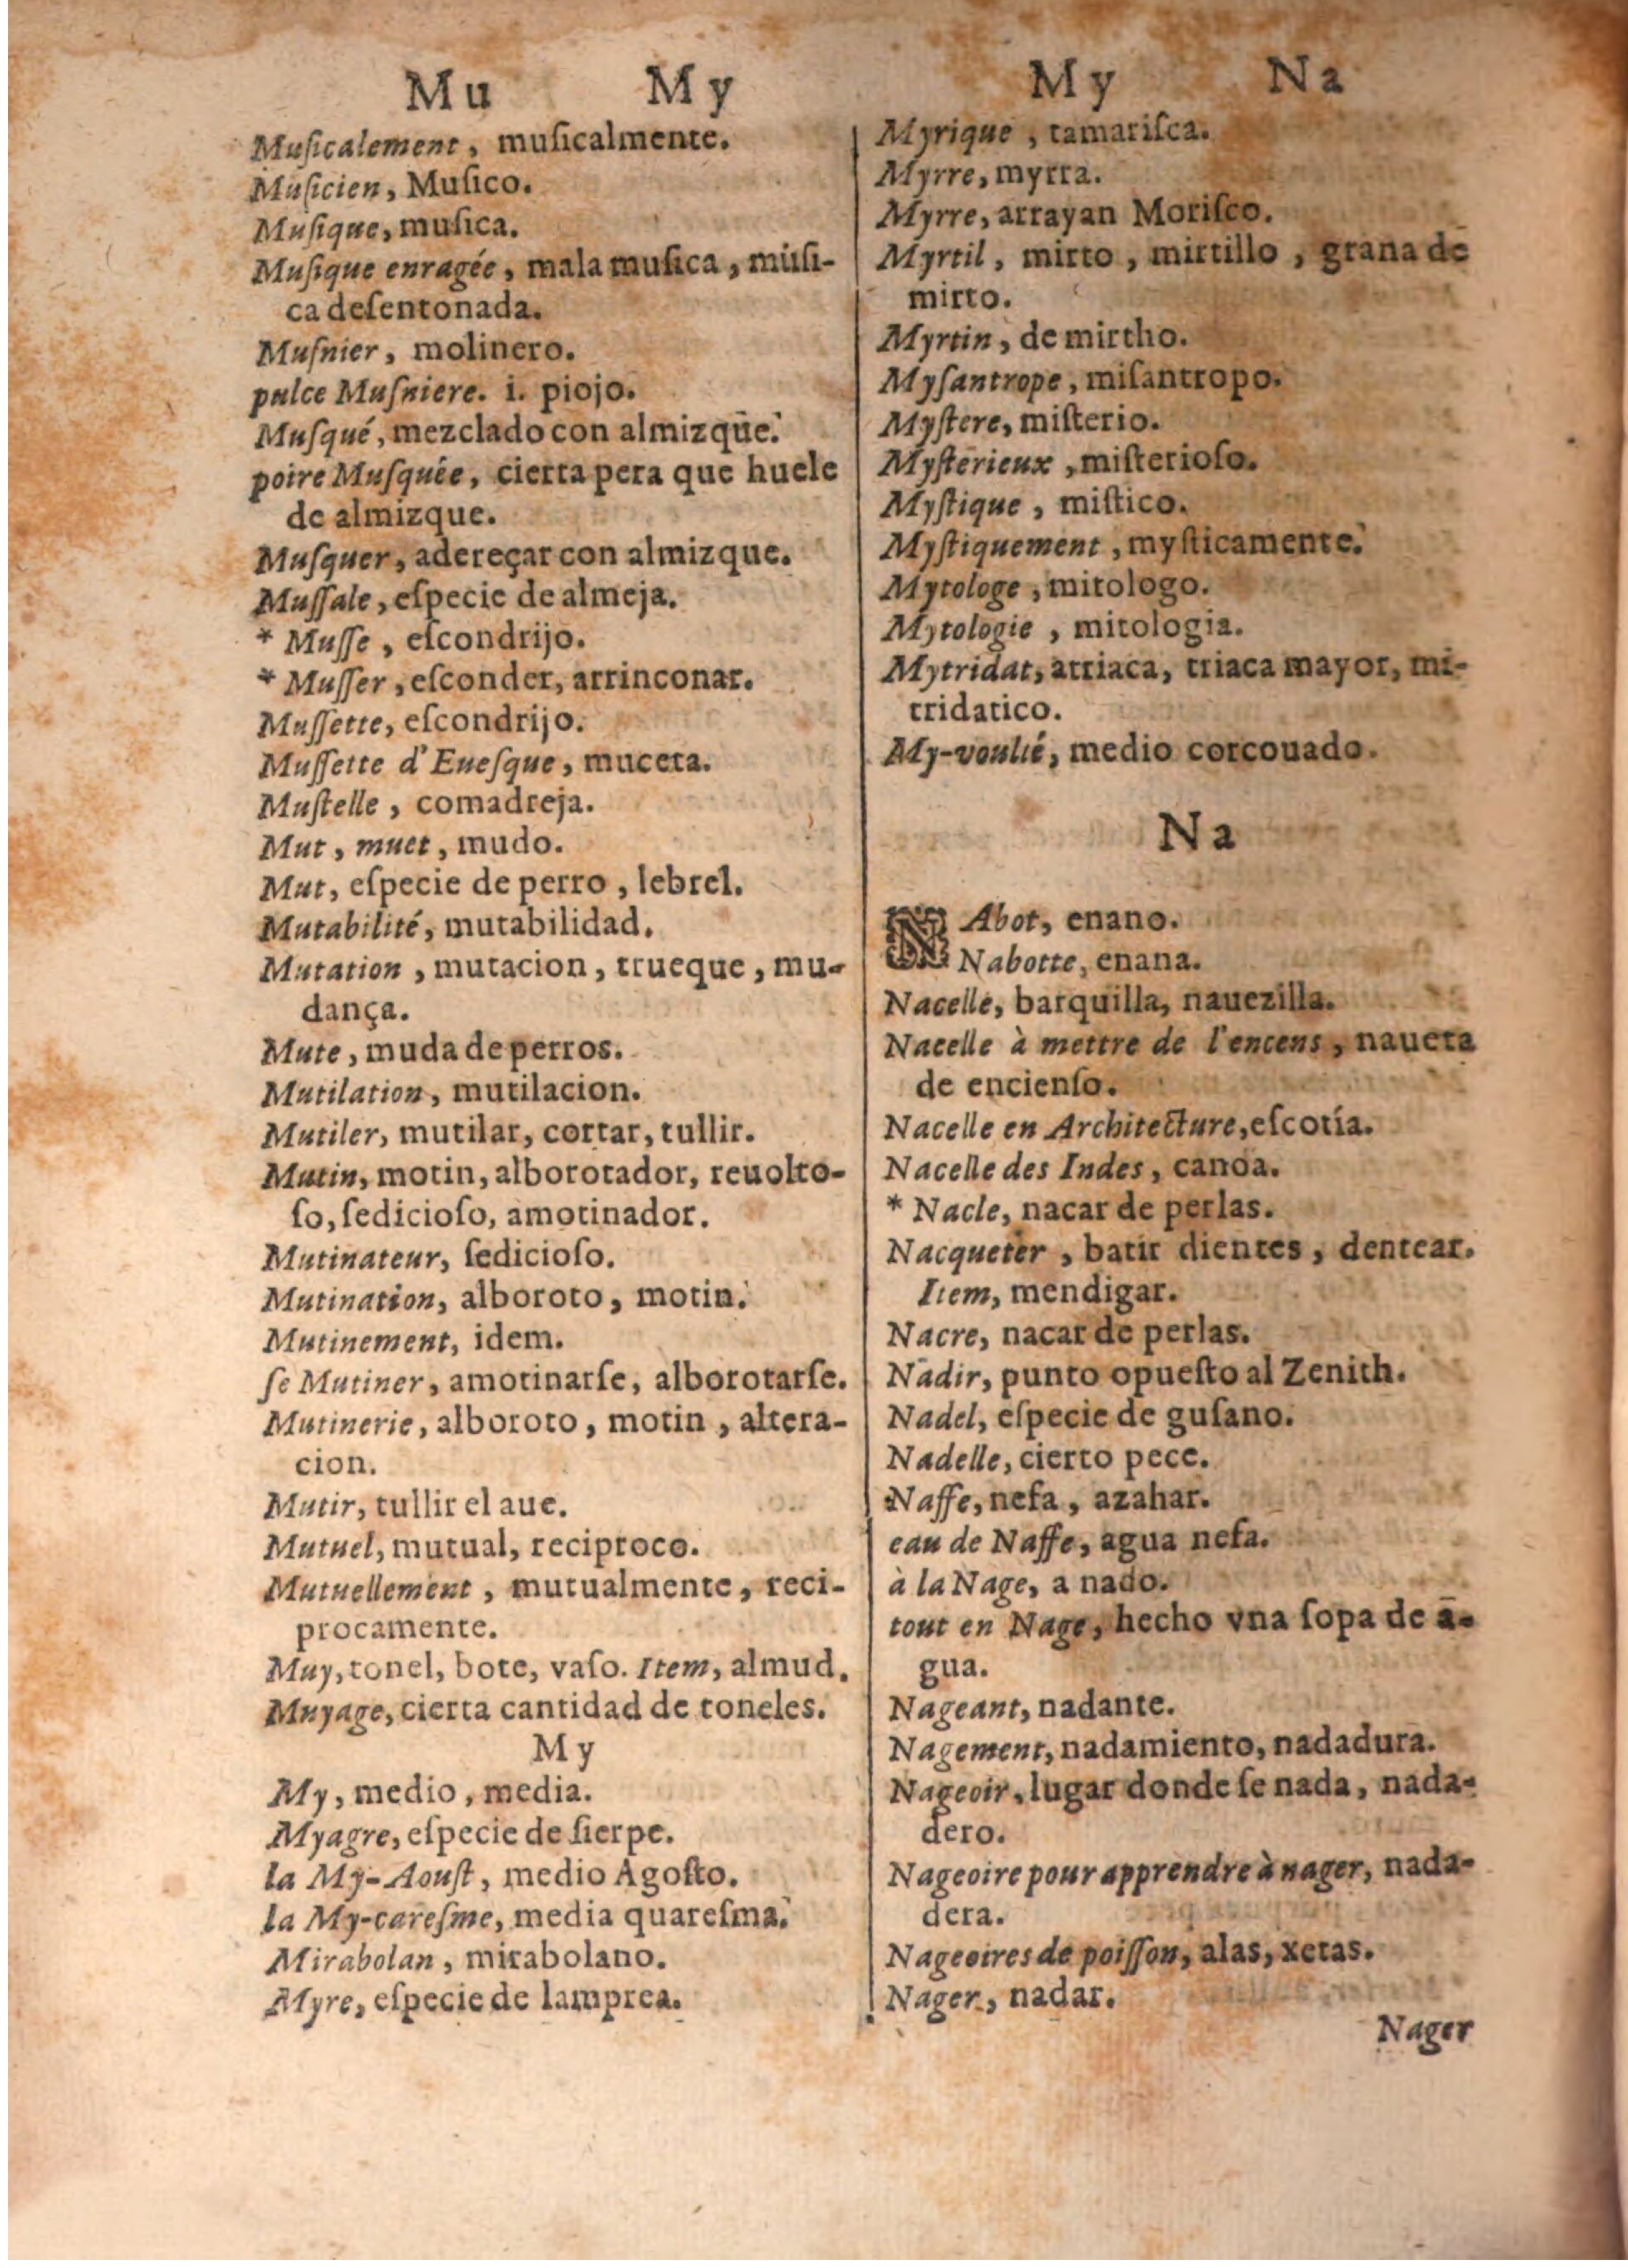 Mu My
Muſicalement, muſicalmente.
Muſicien, Muſico.
Muſique, muſica.
Muſique enragée, mala muſica, muſi-
ca deſentonada.
Muſnier, molinero.
pulce Muſniere. i. piojo.
Muſqué, mezclado con almizque.
poire Muſquée, cierta pera que huele
de almizque.
Muſquer, adereçar con almizque.
Muſſale, eſpecie de almeja.
* Muſſe, eſcondrijo.
* Muſſer, eſconder, arrinconar.
Muſſette, eſcondrijo.
Muſſette d'Eueſque, muceta.
Muſtelle, comadreja.
Mut, muet, mudo.
Mut, eſpecie de perro, lebrel.
Mutabilité, mutabilidad.
Mutation, mutacion, trueque, mu-
dança.
Mute, muda de perros.
Mutilation, mutilacion.
Mutiler, mutilar, cortar, tullir.
Mutin, motin, alborotador, reuolto-
ſo, ſedicioſo, amotinador.
Mutinateur, ſedicioſo.
Mutination, alboroto, motin.
Mutinement, idem.
ſe Mutiner, amotinarſe, alborotarſe.
Mutinerie, alboroto, motin, altera-
cion.
Mutir, tullir el aue.
Mutuel, mutual, reciproco.
Mutuellement, mutualmente, reci-
procamente.
Muy, tonel, bote, vaſo. Item, almud.
Muyage, cierta cantidad de toneles.
My
My, medio, media.
Myagre, eſpecie de ſierpe.
la My-Aouſt, medio Agoſto.
la My-careſme, media quareſma.
Mirabolan, mirabolano.
Myre, eſpecie de lamprea.
My Na
Myrique, tamariſca.
Myrre, myrra.
Myrre, arrayan Moriſco.
Myrtil, mirto, mirtillo, grana de
mirto.
Myrtin, de mirtho.
Myſantrope, miſantropo.
Myſtere, miſterio.
Myſterieux, miſterioſo.
Myſtique, miſtico.
Myſtiquement, myſticamente.
Mytologe, mitologo.
Mytologie, mitologia.
Mytridat, atriaca, triaca mayor, mi-
tridatico.
My-voulté, medio corcouado.
Na
NAbot, enano.
Nabotte, enana.
Nacelle, barquilla, nauezilla.
Nacelle à mettre de l'encens, naueta
de encienſo.
Nacelle en Architecture, eſcotía.
Nacelle des Indes, canoa.
* Nacle, nacar de perlas.
Nacqueter, batir dientes, dentear.
Item, mendigar.
Nacre, nacar de perlas.
Nadir, punto opueſto al Zenith.
Nadel, eſpecie de guſano.
Nadelle, cierto pece.
Naffe, nefa, azahar.
eau de Naffe, agua nefa.
à la Nage, a nado.
tout en Nage, hecho vna ſopa de a-
gua.
Nageant, nadante.
Nagement, nadamiento, nadadura.
Nageoir, lugar donde ſe nada, nada-
dero.
Nageoire pour apprendre à nager, nada-
dera.
Nageoires de poiſſon, alas, xetas.
Nager, nadar.
Nager